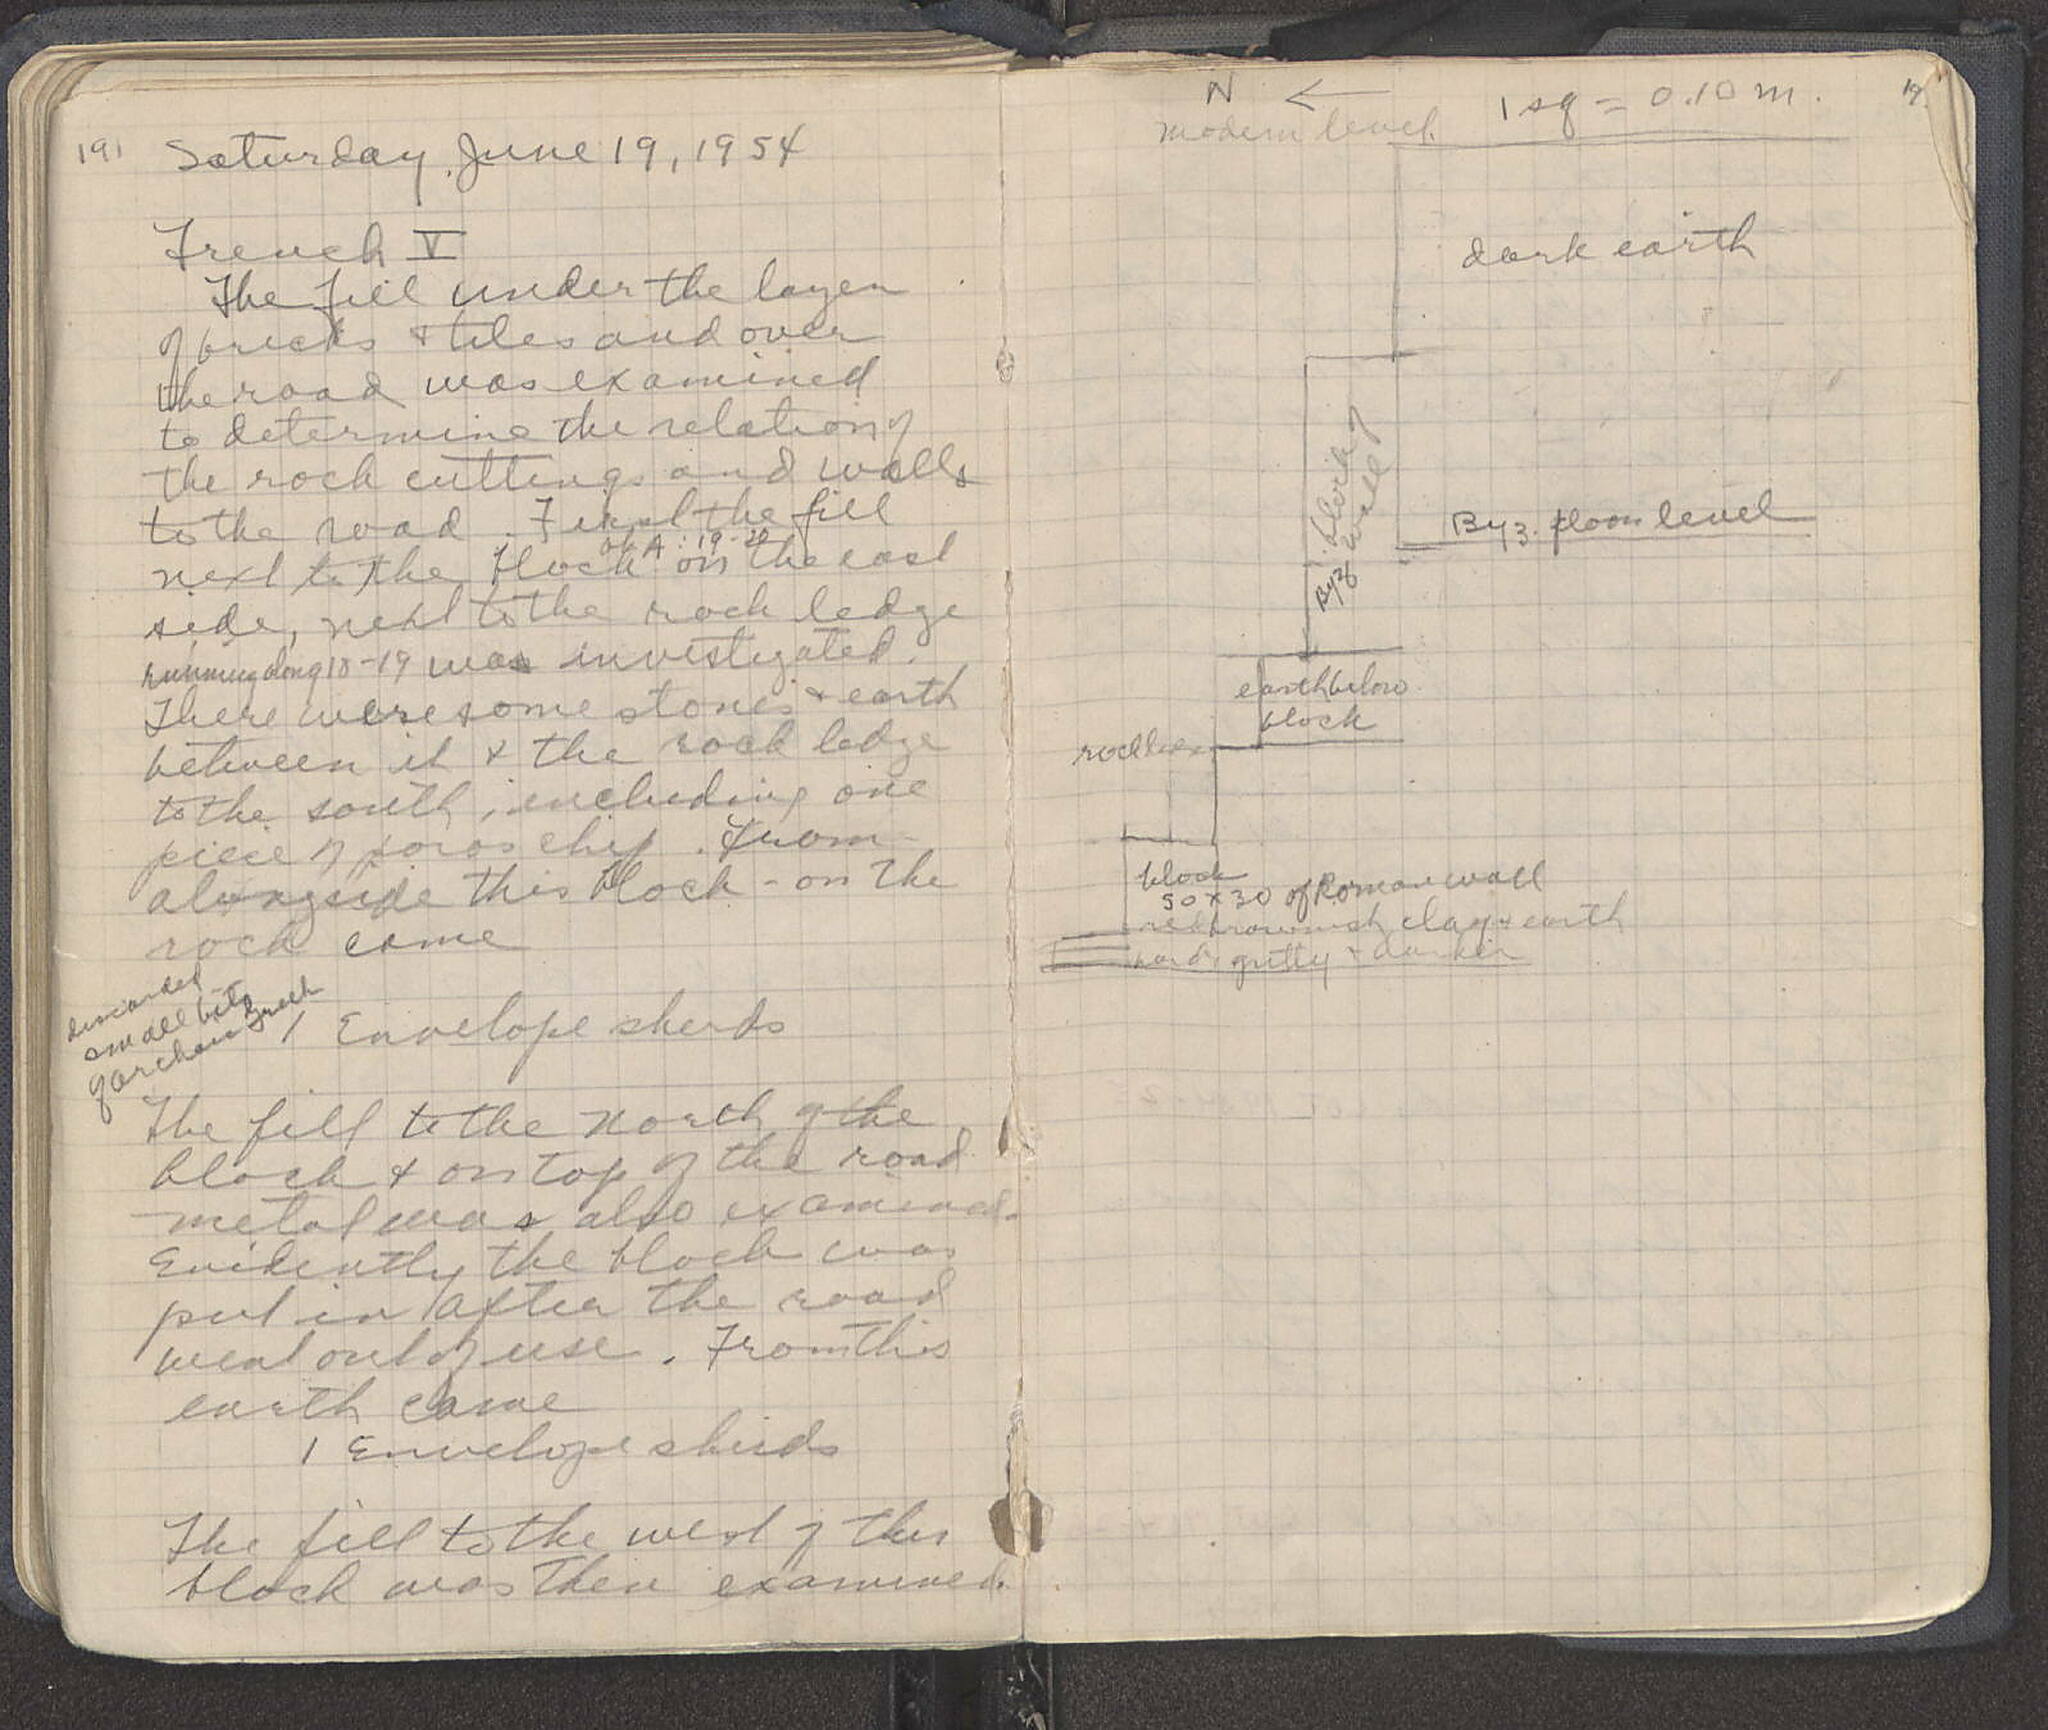 191
Saturday, June 19, 1954
Trench V
The fill under the layer
of bricks & tiles and over
the road was examined
to determine the relation of
the rock cuttings and walls
to the road. First the fill
at A : 19-20
next to the block on the east
side, next to the rock ledge
running along 18-19 was investigated.
There were some stones & earth
between it & the rock ledge
to the south, including one
piece of poros chip. From
alongside this block - on the
rock came
discarded
small bits
of archaic
1 Envelope sherds
The fill to the north of the
block & on top of the road
metal was also examined.
Evidently the block was
put in after the road
went out of use. From this
earth came
1 Envelope sherds
The fill to the west of this
block was then examined.
N
1 sq = 0.10 m.
19
modern level
dark earth
Byz block of
wall
Byz. floor level
earth below
block
block
50 x 30 of Roman wall
redbrownish clay & earth
hard, gritty & darker